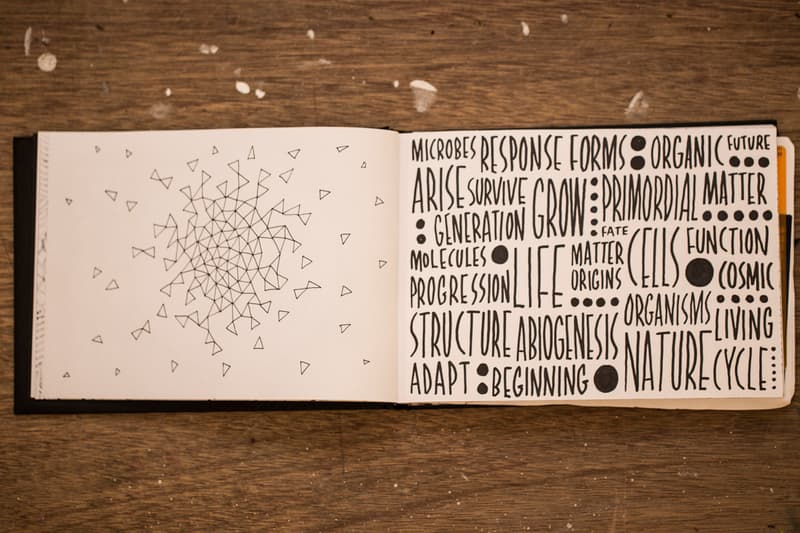 MICROBES RESPONSE FORMS ORGANIC FUTURE
ARISE SURVIVE GROW PRIMORDIAL MATTER
GENERATION FATE
MOLECULES LIFE MATTER CELLS FUNCTION
PROGRESSION ORIGINS COSMIC
STRUCTURE ABIOGENESIS ORGANISMS LIVING
ADAPT BEGINNING NATURE CYCLE